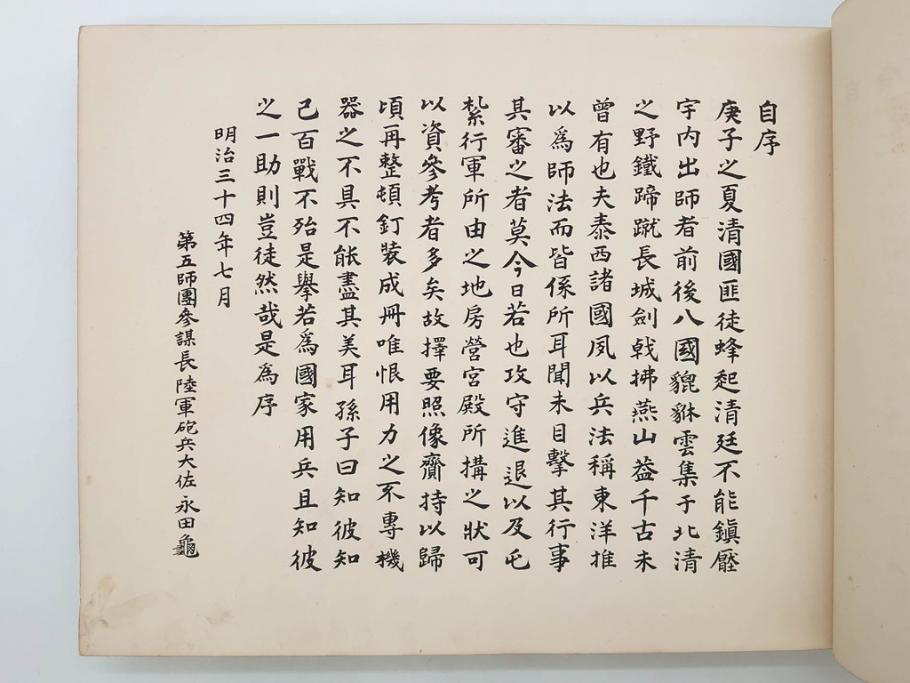 自序
庚子之夏清國匪徒蜂起清廷不能鎮壓
宇内出師者前後八國貔貅雲集于北清
之野鐵蹄蹴長城劍戟拂燕山葢千古未
曾有也夫泰西諸國夙以兵法稱東洋推
以為師法而皆係所耳聞未目擊其行事
其審之者莫今日若也攻守進退以及屯
紮行軍所由之地房營宮殿所搆之狀可
以資參考者多矣故擇要照像齎持以歸
頃再整頓釘裝成冊唯恨用力之不專機
器之不具不能盡其美耳孫子曰知彼知
己百戰不殆是擧若為國家用兵且知彼
之一助則豈徒然哉是為序
明治三十四年七月
第五師團參謀長陸軍砲兵大佐永田龜